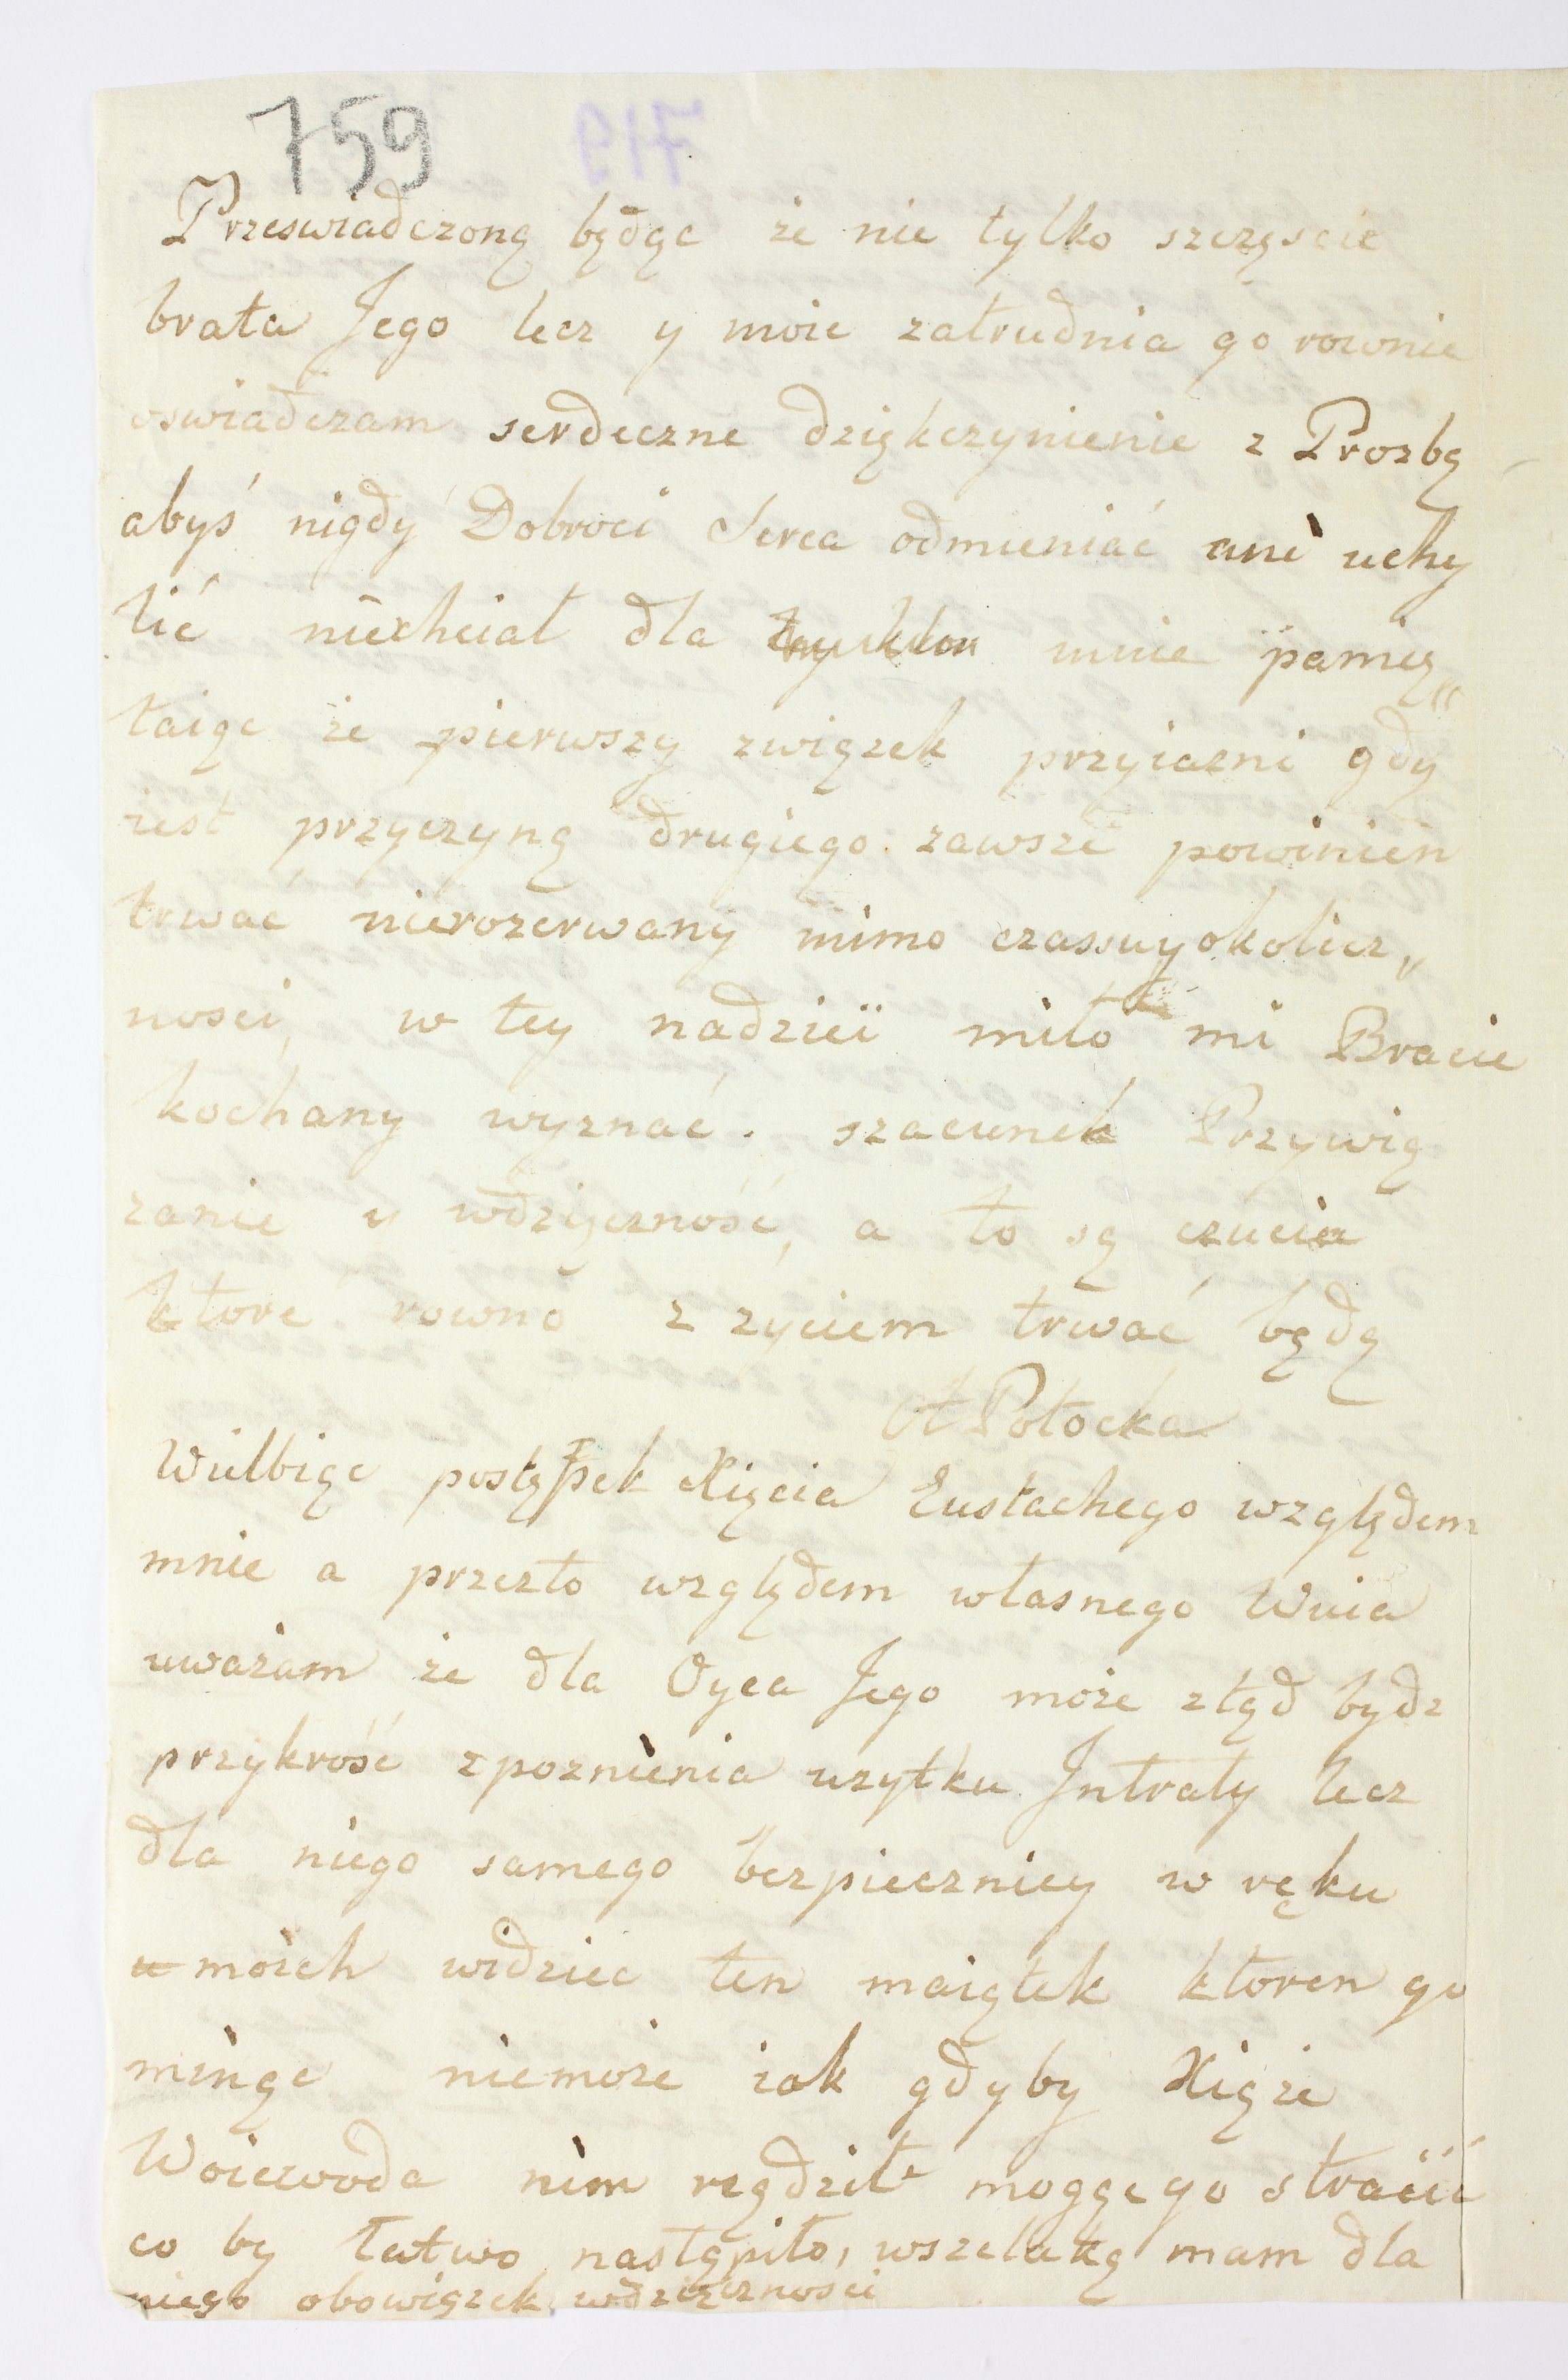 759
719
Przeswiadczoną będąc że nie tylko szczęscie
brata Jego lecz y moie zatrudnia go rownie
oswiadczam serdeczne dziękczynienie z Prozbą
abyś nigdy Dobroci Serca odmieniać ani uchy
lić niechciał dla mnie pamię„
taiąc że pierwszy związek przyiazni gdy
iest przyczyną drugiego zawsze powinien
trwać nierozerwany mimo czassu y okolicz„
nosci, w tey nadzieii miło mi Bracie
kochany wyznać. szacunek Przywią
zanie y wdzięczność, a to są czucia
ktore rowno z zyciem trwać będą
A Potocka
Wielbiąc postępek Xięcia Eustachego względem
mnie a przezto względem własnego Wuia
uważam że dla Oyca Jego może ztąd bydz
przykrość zpoznienia uzytku Jntraty lecz
dla niego samego bezpieczniey w ręku
moich widziec ten maiątek ktoren go
minąc niemoże iak gdyby Xiąże
Woiewoda nim rządził mogąc go stracić
co by łatwo nastąpiło, wszelaką mam dla
niego obowiązek wdzięcznosci